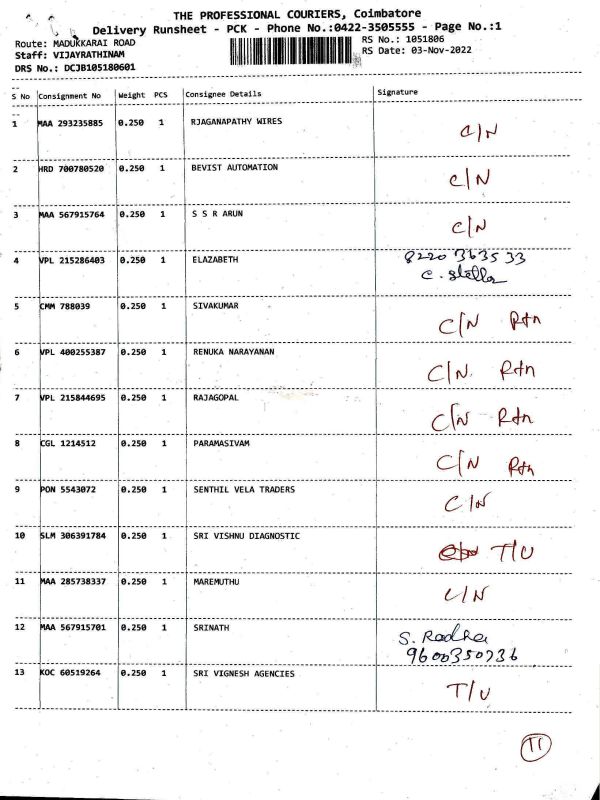 THE PROFESSIONAL COURIERS, Coimbatore
Delivery Runsheet - PCK - Phone No.:0422-3505555 - Page No.:1
Route: MADUKKARAI ROAD
RS No.: 1051806
Staff: VIJAYRATHINAM
RS Date: 03-Nov-2022
DRS No.: DCJB105180601
S No Consignment No Weight PCS Consignee Details Signature
1 MAA 293235885 0.250 1 RJAGANAPATHY WIRES C/N
2 HRD 700780520 0.250 1 BEVIST AUTOMATION C/N
3 MAA 567915764 0.250 1 S S R ARUN C/N
4 VPL 215286403 0.250 1 ELAZABETH 8220363533
C. Stella
5 CMM 788039 0.250 1 SIVAKUMAR C/N Rtn
6 VPL 400255387 0.250 1 RENUKA NARAYANAN C/N Rtn
7 VPL 215844695 0.250 1 RAJAGOPAL C/N Rtn
8 CGL 1214512 0.250 1 PARAMASIVAM C/N Rtn
9 PON 5543072 0.250 1 SENTHIL VELA TRADERS C/N
10 SLM 306391784 0.250 1 SRI VISHNU DIAGNOSTIC T/U
11 MAA 285738337 0.250 1 MAREMUTHU C/N
12 MAA 567915701 0.250 1 SRINATH S. Radha
9600350736
13 KOC 60519264 0.250 1 SRI VIGNESH AGENCIES T/U